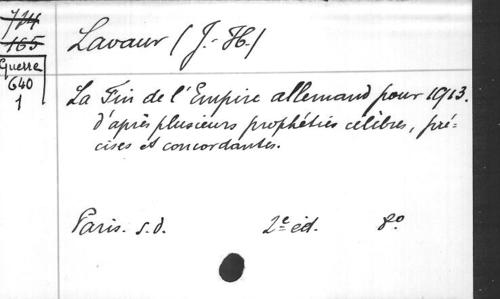 724
165
Guerre
640
1
Lavaur (J.-H.)
La Fin de l'Empire allemand pour 1913.
d'après plusieurs prophéties célèbres, pré-
cises et concordantes.
Paris. s.d. 2e éd. 8o